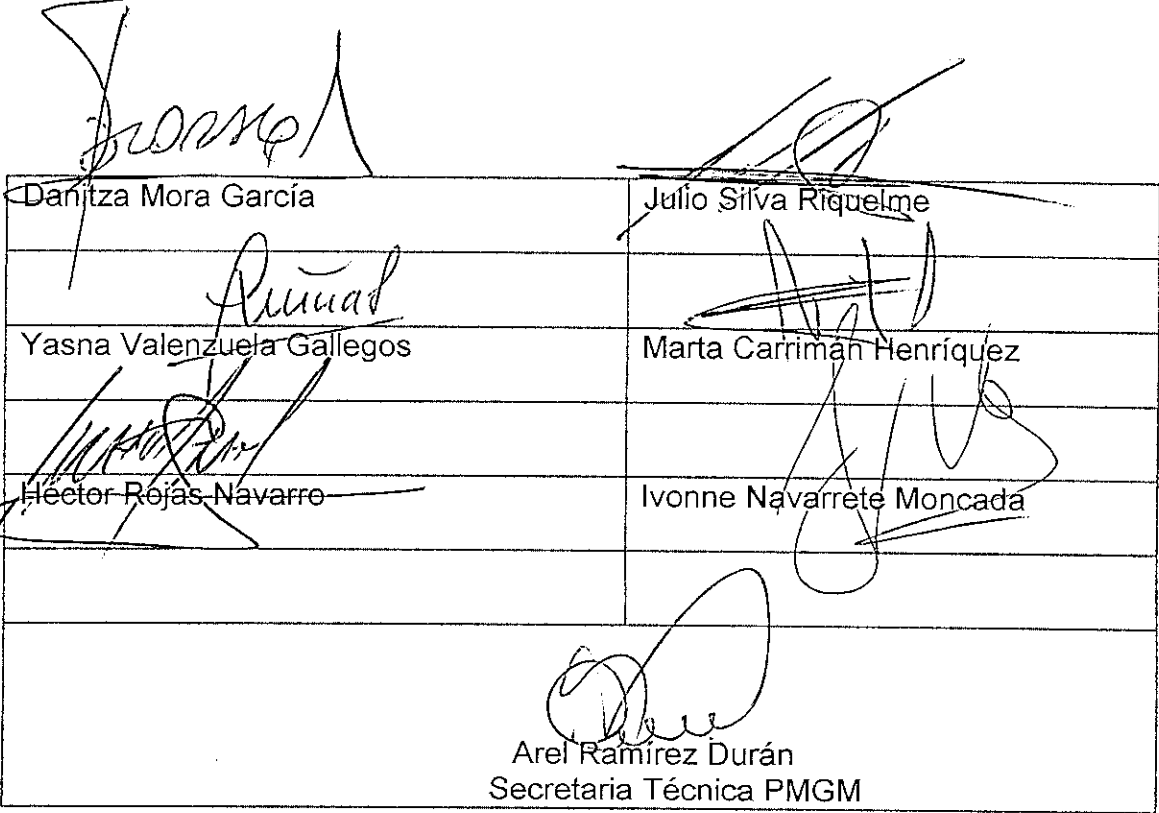 Danitza Mora García
Julio Silva Riquelme
Yasna Valenzuela Gallegos
Marta Carriman Henríquez
Héctor Rojas Navarro
Ivonne Navarrete Moncada
Arel Ramírez Durán
Secretaria Técnica PMGM